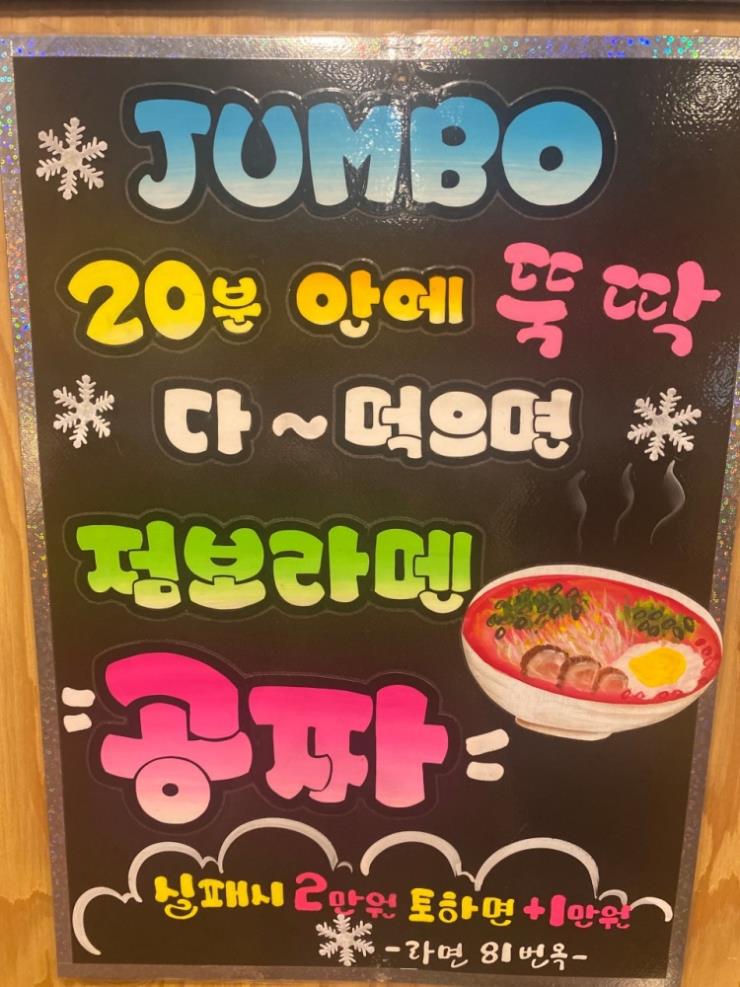 JUMBO
20분 안에 뚝딱
다~먹으면
점보라멘
공짜
실패시 2만원 토하면 +1만원
-라면 81번옥-